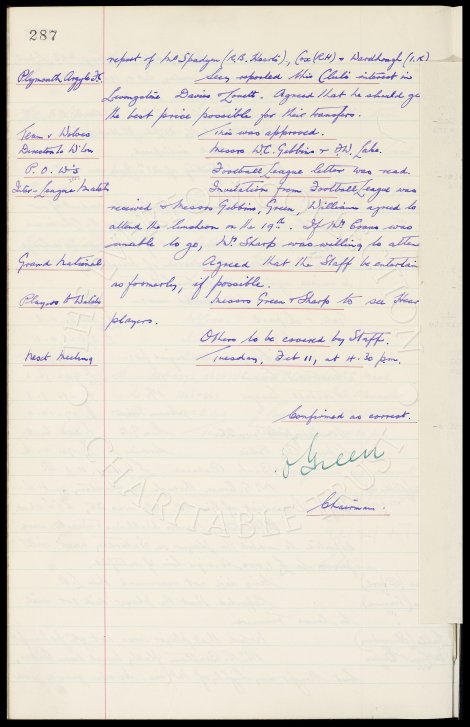 287
report of Mr Spadger (R.B. Hearts), Cox (RH) & Wardhaugh (I.R)
Plymouth Argyle F.C. Secy reported this Club's interest in
Livingstone Davies & Lovett. Agreed that he should ge
the best price possible for their transfers.
Team v Wolves This was approved.
Director to W'ton Messrs W.C. Gibbins & F.W. Lake.
P. O. W's Football League letter was read.
Inter-League Match Invitation from Football League was
received & Messrs Gibbins, Green, Williams agreed to
attend the luncheon on the 19th. If Mr Evans was
unable to go, Mr Sharp was willing to atten
Grand National Agreed that the Staff be entertain
as formerly, if possible.
Players to Watch Messrs Green & Sharp to see Hear
players.
Others to be covered by Staff.
Next Meeting Tuesday, Feb 11, at 4.30 pm.
Confirmed as correct.
Green
Chairman.
CHARITABLE TRUST